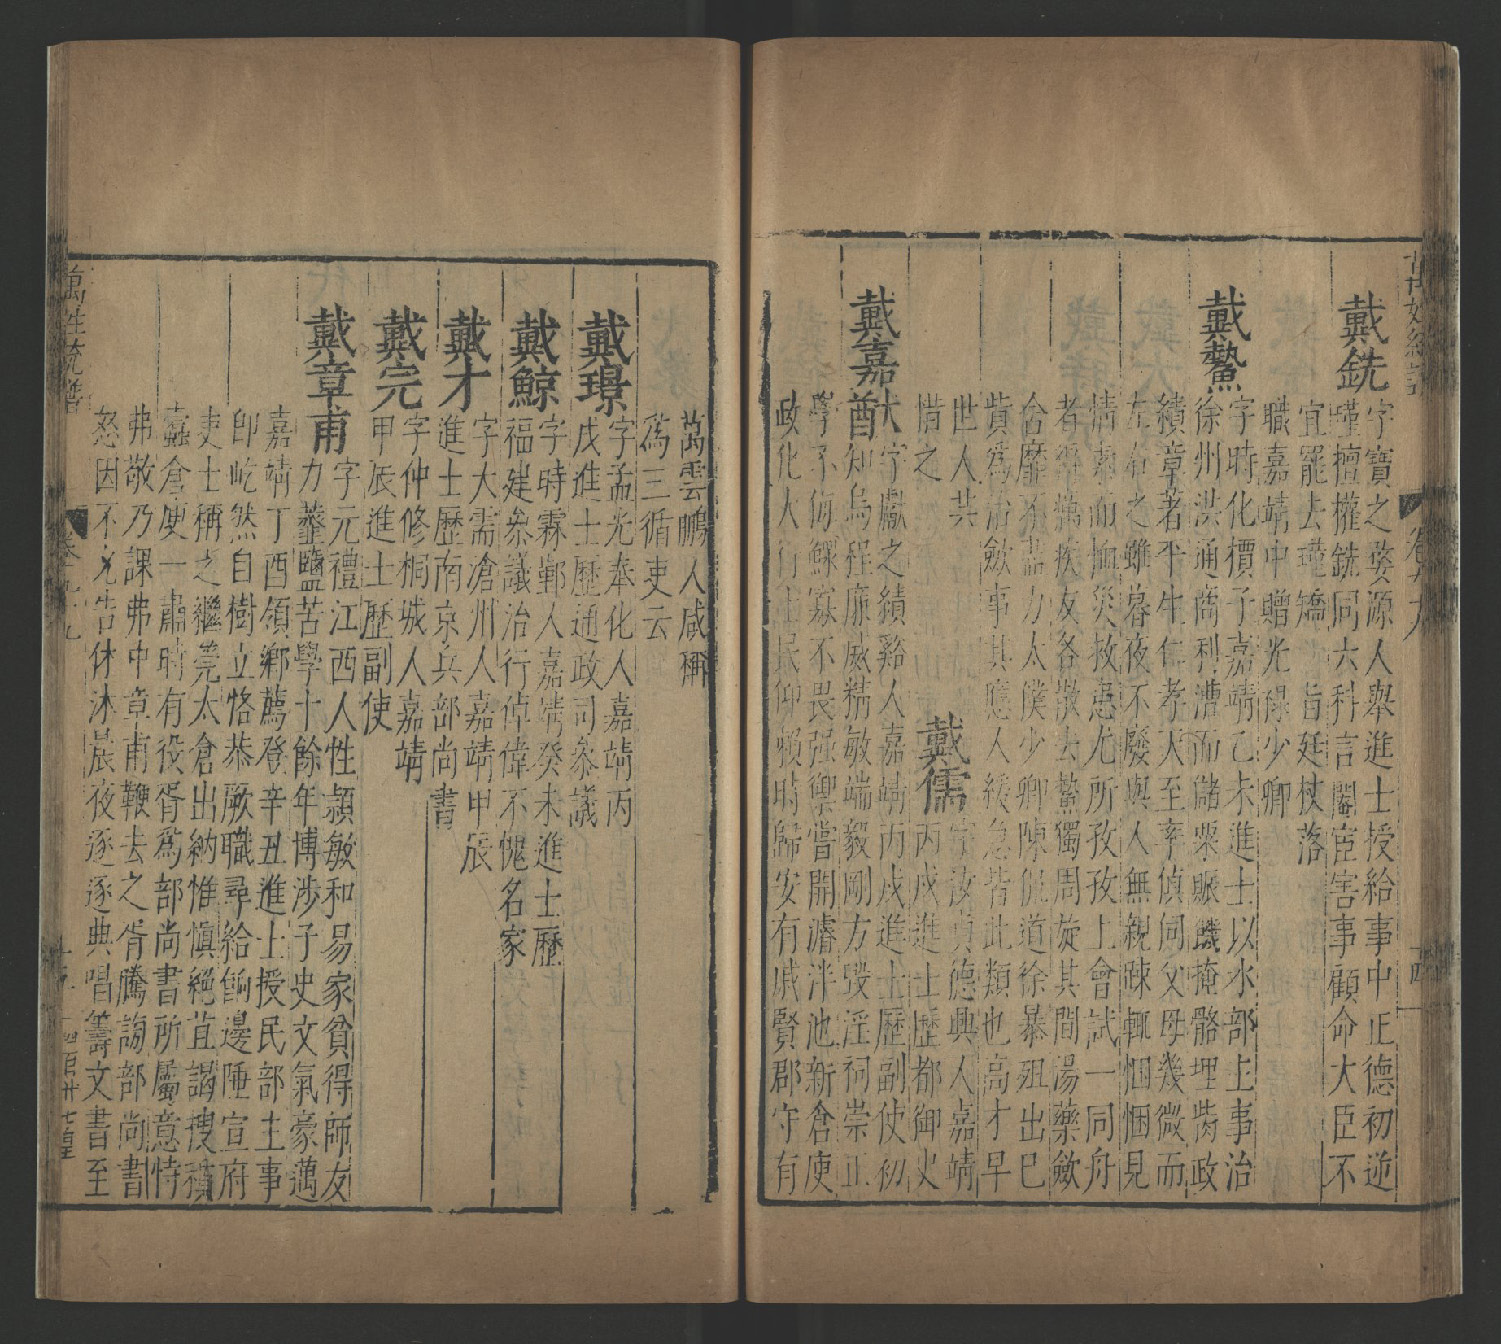 戴銑
字寶之婺源人舉進士授給事中正德初逆
瑾擅權銑同六科言閹宦害事顧命大臣不
宜罷去瑾矯旨廷杖落
職嘉靖中贈光祿少卿
戴鰲
字時化價子嘉靖己未進士以水部主事治
徐州洪通商利漕而儲粟賑饑掩骼埋胔政
績章著平生仁孝天至率偵伺父母幾微而
左右之雖暮夜不廢與人無親疎輒悃悃見
情素而恤災救患尤所孜孜上會試一同舟
者得癘疾友各散去鰲獨周旋其間湯藥歛
含靡不盡力太僕少卿陳侃道徐暴殂出巳
貲爲治歛事其應人緩急皆此類也高才早
世人共
惜之
戴儒
字汝真德興人嘉靖
丙戌進士歷都御史
戴嘉猷
字獻之績谿人嘉靖丙戌進士歷副使初
知烏程廉威精敏端毅剛方毀淫祠崇正
學不侮鰥寡不畏强禦嘗開濬泮池新倉庾
政化大行士民仰頓時歸安有戚賢郡守有
萬雲鵬人咸稱
爲三循吏云
戴璟
字孟光奉化人嘉靖丙
戌進士歷通政司參議
戴鯨
字時霖鄞人嘉靖癸未進士歷
福建參議治行倬偉不愧名家
戴才
字大需滄州人嘉靖甲辰
進士歷南京兵部尚書
戴完
字仲修桐城人嘉靖
甲辰進士歷副使
戴章甫
字元禮江西人性穎敏和易家貧得師友
力虀鹽苦學十餘年博涉子史文氣豪邁
嘉靖丁酉領鄉薦登辛丑進士授民部主事
卽屹然自樹立恪恭厥職尋給餉邊陲宣府
吏士稱之繼莞太倉出納惟愼絕苴謁搜積
蠹倉庾一肅時有役胥爲部尚書所屬意恃
弗敬乃課弗中章甫鞭去之胥騰詾部尚書
怒因不允告休沐晨夜逐逐典唱籌文書至
萬姓統譜
卷九十九